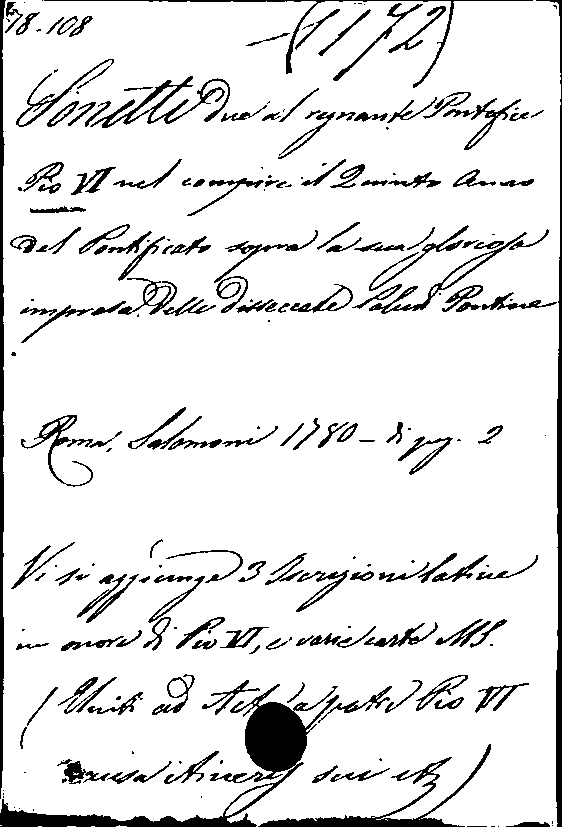 78.108
(1172)
Sonetti due al regnante Pontefice
Pio VI nel compire il Quinto Anno
del Pontificato sopra la sua gloriosa
impresa delle disseccate Paludi Pontine
Roma, Salomoni 1780 – di pag. 2
Vi si aggiunge 3 Iscrizioni latine
in onore di Pio VI, e varie carte MS.
(Uniti ad Act a patre Pio VI
causa itineris sui